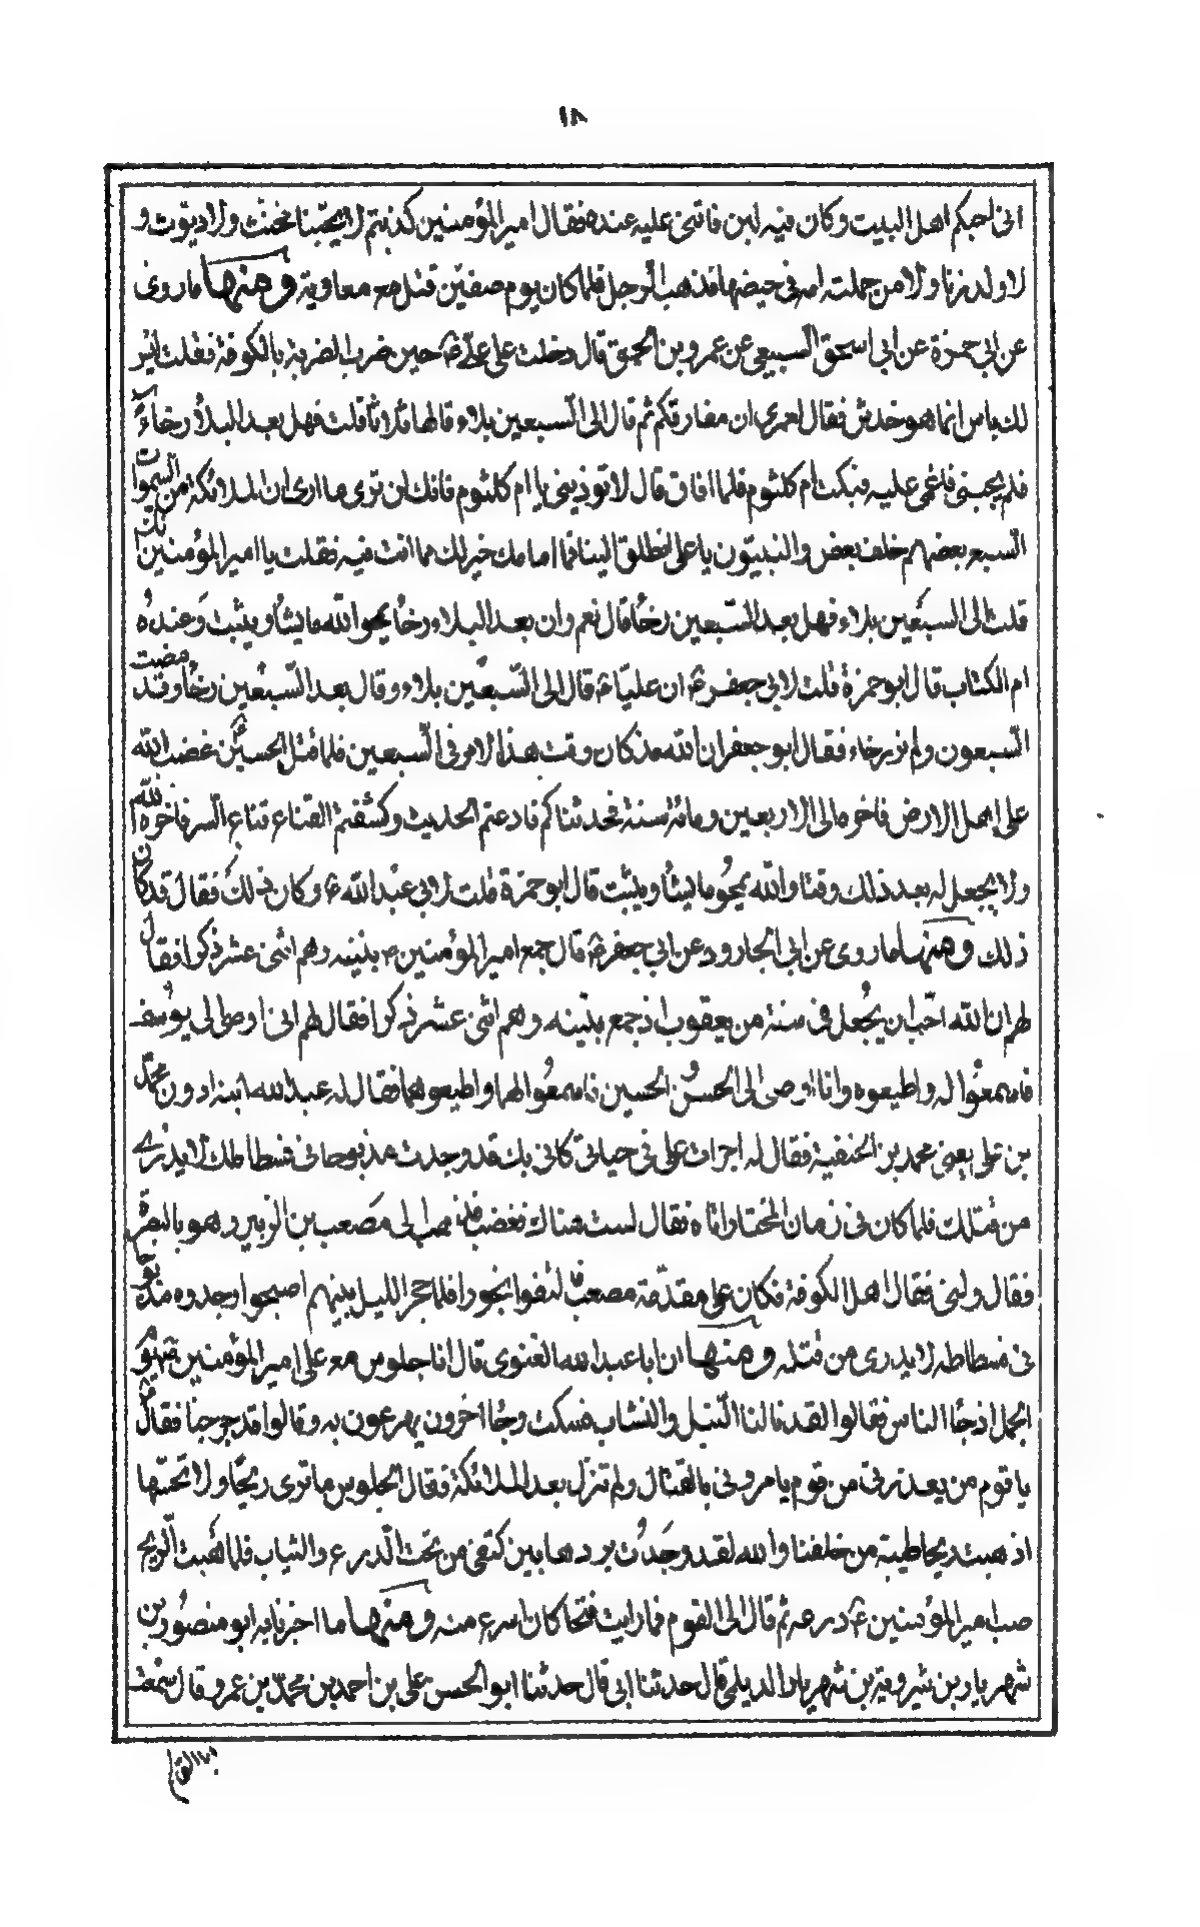 ١٨
انى احبكم اهل البيت وكان فيه لين فاثنى عليه عنده فقال امير المؤمنين كذبتم لا يحبنا مخنث ولا ديوث و
لا ولد زنا ولا من حملته امه فى حيضها فذهب الرجل فلما كان يوم صفين قتل مع معاوية ومنها ما روى
عن ابى حمزة عن ابى اسحق السبيعى عن عمرو بن الحمق قال دخلت على علىّ ع حين ضرب الضربة بالكوفة فقلت ليس
لك باس انما هو خدش فقال لعمرى ان مفارقكم ثم قال الى السبعين بلاء قالها ثلاثا قلت فهل بعد البلاء رخاء
فلم يجبنى فاغمى عليه فبكت ام كلثوم فلما افاق قال لا توذينى يا ام كلثوم فانك لن ترى ما ارى ان الملائكة من السموات
السبع بعضهم خلف بعض والنبيون يا على انطلق الينا فما امامك خير لك مما انت فيه فقلت يا امير المؤمنين انك
قلت الى السبعين بلاء فهل بعد السبعين رخا قال نعم وان بعد البلاء رخا يمحو الله ما يشا ويثبت وعنده
ام الكتاب قال ابو حمزة قلت لابى جعفر ع ان عليا ع قال الى السبعين بلاء وقال بعد السبعين رخا وقد مضت
السبعون ولم نر رخاء فقال ابو جعفر ان الله قد كان وقت هذا الامر فى السبعين فلما قتل الحسين ع غضب الله
على اهل الارض فاخره الى الاربعين ومائة سنة فحدثناكم فاذعتم الحديث وكشفتم القناع قناع السر فاخره الله
ولا يجعل له بعد ذلك وقتا والله يمحو ما يشا ويثبت قال ابو حمزة قلت لابى عبد الله ع وكان ذلك فقال قد كان
ذلك ومنها ما روى عن ابى الجارود عن ابى جعفر ع قال جمع امير المؤمنين ع بنيه وهم اثنى عشر ذكرا فقال
لهم ان الله احب ان يجعل فى سنة من يعقوب اذ جمع بنيه وهم اثنى عشر ذكرا فقال لهم انى اوصى الى يوسف
فاسمعوا له واطيعوه وانا اوصى الى الحسن والحسين فاسمعوا لهما واطيعوهما فقال له عبد الله ابنه ادون محمد
بن على يعنى محمد بن الحنفية فقال له اجراة على فى حياتى كانى بك قد وجدت مذبوحا فى فسطاطك لا يدرى
من قتلك فلما كان فى زمان المختار اتاه فقال لست هناك فغضب فذهب الى مصعب بن الزبير وهو بالبصرة
فقال ولنى فقال اهل الكوفة فكان على مقدمة مصعب فالتقوا بحورا فلما حجز الليل بينهم اصبحوا وجدوه مذبوحا
فى فسطاطه لا يدرى من قتله ومنها ان ابا عبد الله الغنوى قال انا جلوس مع على امير المؤمنين ع يوم
الجمل اذ جاء الناس فقالوا لقد نالنا النبل والنشاب فسكت وجا اخرون يهرعون به وقالوا قد جرحنا فقال ع
يا قوم من يعذرنى من قوم يامرونى بالقتال ولم تنزل بعد الملائكة فقال الجلوس ما نرى ريحا ولا نحسها
اذ هبت ريحا طيبة من خلفنا والله لقد وجدت بردها بين كتفى من تحت الدرع والثياب فلما هبت الريح
صب امير المؤمنين ع درعه ثم قال الى القوم فما رايت فتحا كان اسرع منه ومنها ما اخبرنا به ابو منصور بن
شهريار بن شيرويه بن شهريار الديلمى قال حدثنا ابى قال حدثنا ابو الحسن على بن احمد بن محمد بن عمرو قال سمعت